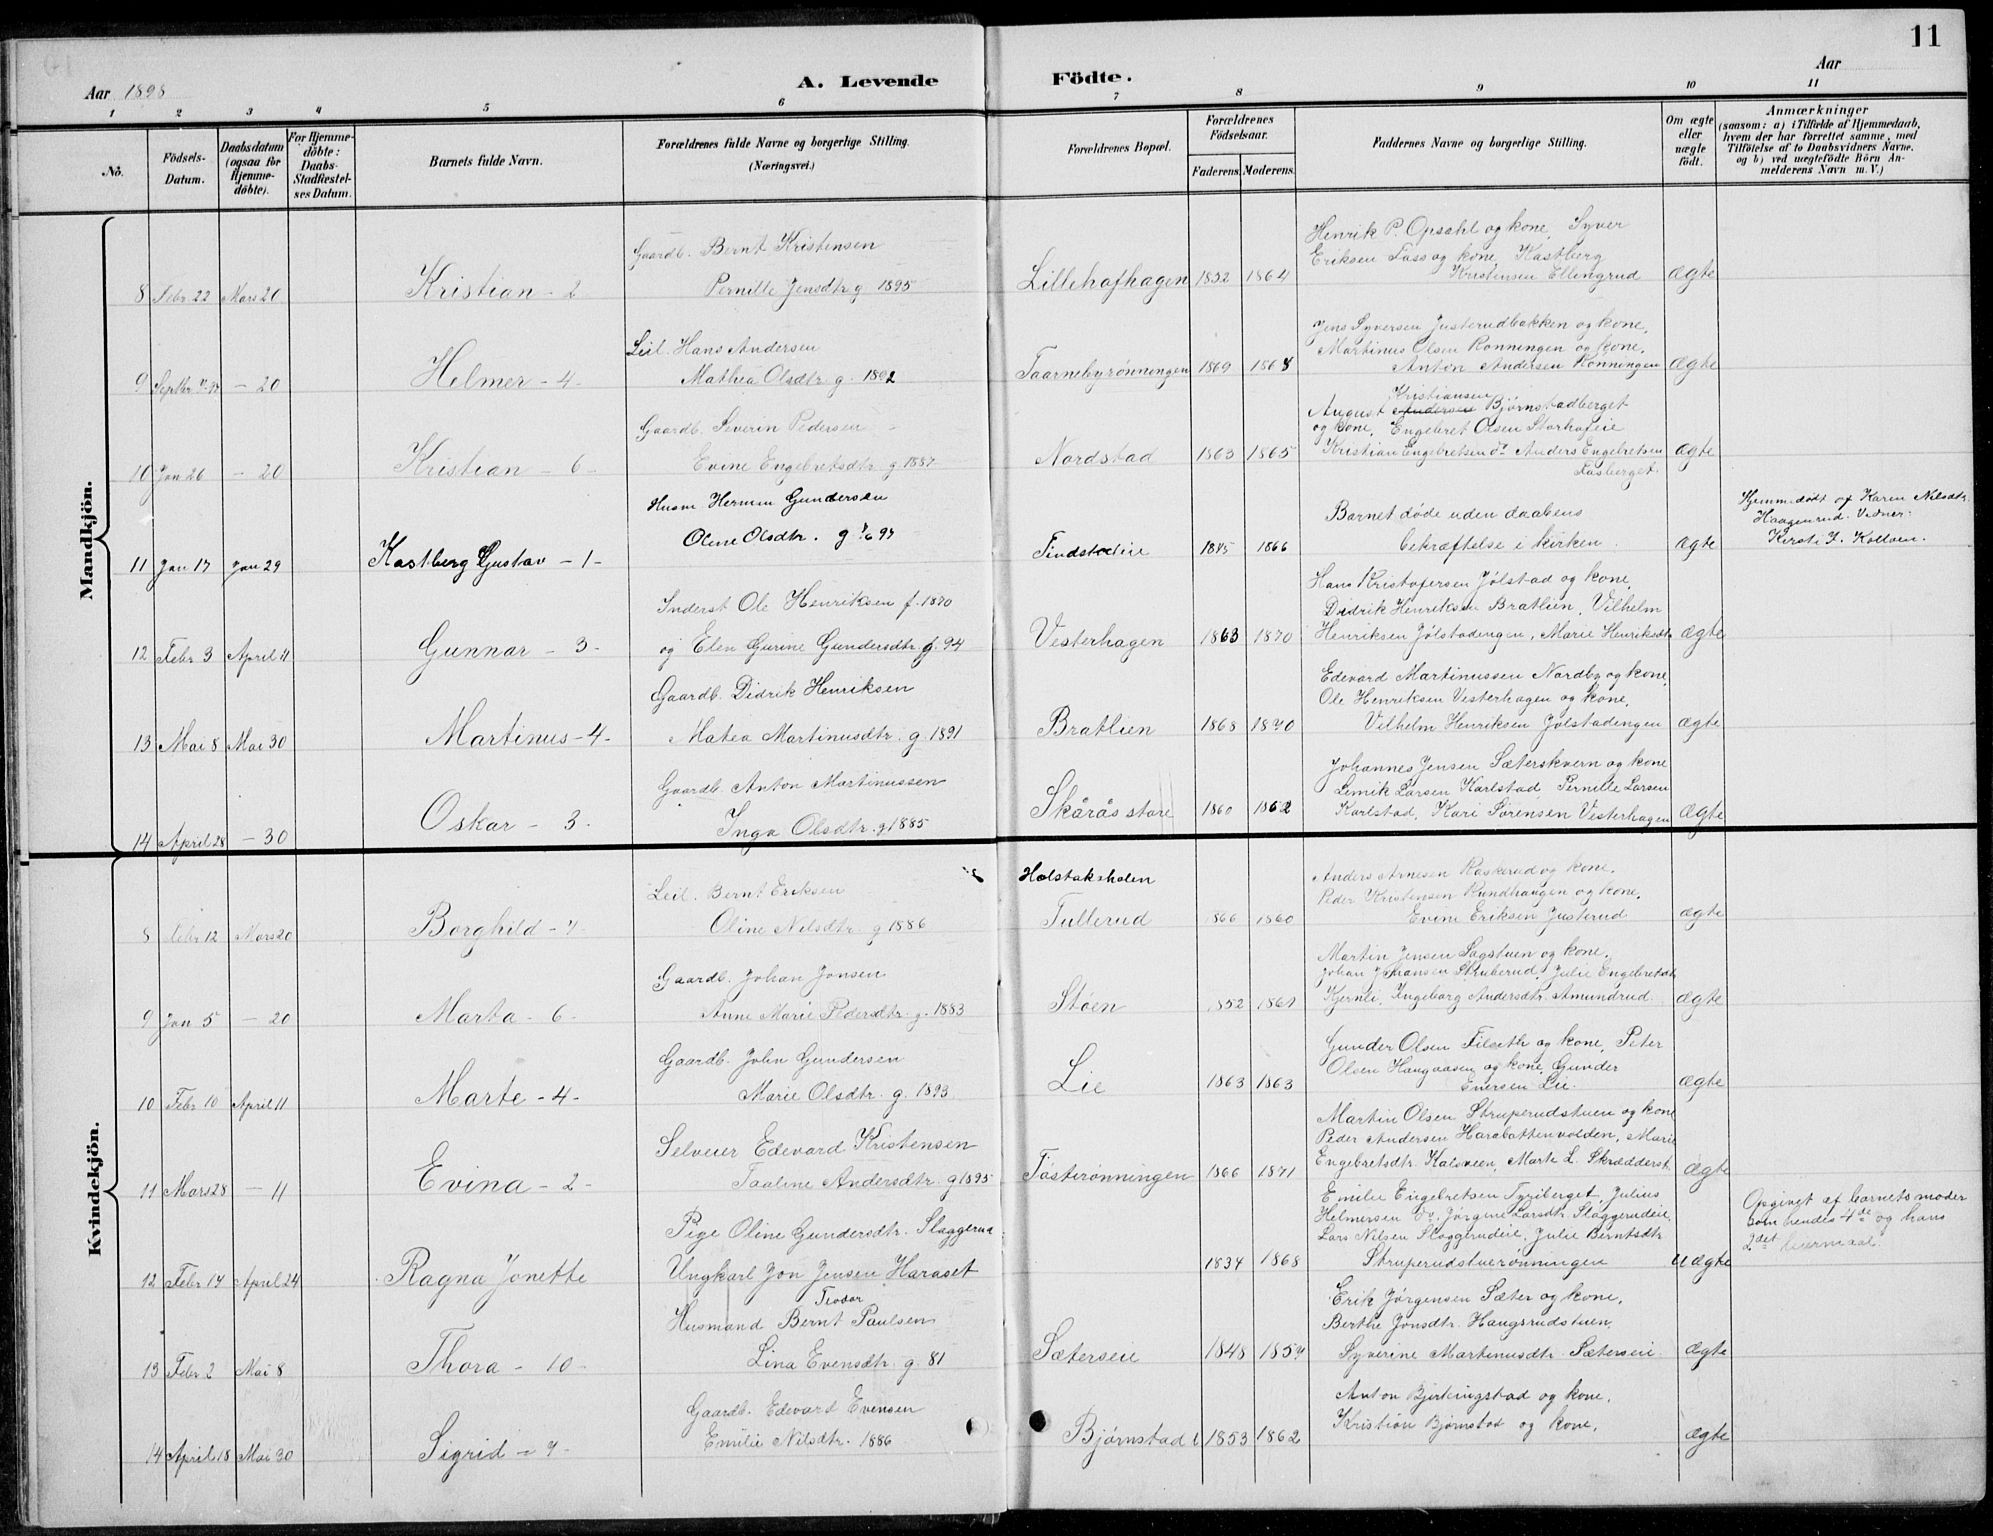 11
Aar 1898
A. Levende Födte.
Aar
1 2 3 4 5 6 7 8 9 10 11
No.
Födsels-Datum.
Daabsdatum (ogsaa for Hjemmedöbte).
For Hjemmedöbte: Daabs-Stadfæstelses Datum.
Barnets fulde Navn.
Forældrenes fulde Navne og borgerlige Stilling. (Næringsvei.)
Forældrenes Bopæl.
Forældrenes Födselsaar.
Faderens. Moderens.
Faddernes Navne og borgerlige Stilling.
Om ægte eller uægte födt.
Anmærkninger
(saasom: a) i Tilfælde af Hjemmedaab,
hvem der har forrettet samme, med
Tilföielse af to Daabsvidners Navne.
og b) ved uægtefödte Börn An-
melderens Navn m.V.)
Mandkjön.
Gaardb. Bernt Kristensen
Henrik P. Opsahl og kone, Syver
Eriksen Fass og kone, Kastberg
Kristensen Ellingrud
8 Febr 22 Mars 20 Kristian - 2 Pernille Jensdtr g 1895 Lillehafhagen 1852 1864 ægte
Leil. Hans Andersen
Jens Syversen Justerudbakken og kone,
Martinus Olsen Rønningen og kone,
Anton Andersen Rønningen
9 Septbr - 20 Helmer - 4 - Mathea Olsdtr g. 1892 Taarnebyrønningen 1869 1868 ægte
Gaardb. Severin Pedersen
Kristiansen
August Andersen Bjørnstadberget
og kone, Engebret Olsen Storhofeie
Kristian Engebretsen do Anders Engebretsen
Aasberget.
10 Jan 26 - 20 Kristian - 6 - Evine Engebretsdtr g. 1887 Nordstad 1863 1865 ægte
Husm Herman Gundersen
Barnet døde uden daabens
bekræftelse i kirken.
Hjemmedøbt af Karen Nilsdtr.
Haagenrud. Vidner:
Kersti J. Kolloen.
11 Jan 17 Jan 29 Kastberg Gustav - 1 - Oline Olsdtr. g 97 Tindstadeie 1875 1866 ægte
Inderst Ole Henriksen f. 1870
Hans Kristofersen Jølstad og kone,
Didrik Henriksen Bratlien, Vilhelm
Henriksen Jølstadengen, Marie Henriksdtr
12 Febr 3 April 11 Gunnar - 3 - og Elen Gurine Gundersdtr g. 94 Vesterhagen 1863 1870 ægte
Gaardb. Didrik Henriksen
Edevard Martinussen Nordby og kone,
Ole Henriksen Vesterhagen og kone,
Vilhelm Henriksen Jølstadengen
13 Mai 8 Mai 30 Martinus - 4 - Matea Martinusdtr. g. 1891 Bratlien 1868 1870 ægte
Gaardb. Anton Martinussen
Johannes Jensen Sæterskvern og kone
Lemik Larsen Karlstad, Pernille Larsen
Karlstad, Kari Sørensen Vesterhagen
14 April 28 - 30 Oskar - 3 - Inga Olsdtr. g 1885 Skårås store 1860 1862 ægte
Kvindekjön.
Leil. Bernt Eriksen
Holstaksholen
Anders Arnesen Raskerud og kone,
Peder Kristensen Rundhaugen og kone,
Evine Eriksen Justerud
8 Febr 12 Mars 20 Borghild - 7 - Oline Nilsdtr. g 1886 Tullerud 1866 1860 ægte
Gaardb. Johan Jonsen
Martin Jensen Sagstuen og kone,
Johan Johansen Struberud, Julie Engebretsdtr
Kjernli, Ingeborg Andersdtr. Amundrud.
9 Jan 5 - 20 Marta - 6 - Anne Marie Pedersdtr. g. 1883 Støen 1852 1861 ægte
Gaardb. John Gundersen
Gunder Olsen Filseth og kone, Peter
Olsen Haugaasen og kone, Gunder
Enersen Lie.
10 Febr 10 April 11 Marte - 4 - Marie Olsdtr. g. 1893 Lie 1863 1863 ægte
Selveier Edevard Kristensen
Martin Olsen Struperudstuen og kone
Peder Andersen Harabattenvolden, Marie
Engebretsdtr. Kalsveen, Marte L. Skrædderst.
11 Mars 28 - 11 Evina - 2 - Taaline Andersdtr. g 1895 Tosterønningen 1866 1871 ægte
Pige Oline Gundersdtr. Slaggerud
Emilie Engebretsen Tyriberget, Julius
Helmersen do. Jørgine Larsdtr. Slaggerudeie,
Lars Nilsen Slaggerudeie, Julie Berntsdtr.
Struperudstuerønningen
Opgivet af barnets moder
som hendes 4de og hans
2det leiermaal.
12 Febr 14 April 24 Ragna Jonette Ungkarl Jon Jensen Haraset 1834 1868 uægte
Teodor
Husmand Bernt Paulsen
Erik Jørgensen Sæter og kone,
Berthe Jonsdtr. Haugsrudstuen,
Syverine Martinusdtr. Sæterseie.
13 Febr 2 Mai 8 Thora - 10 - Lina Evensdtr. g. 81 Sæterseie 1848 1859 ægte
Gaardb. Edevard Evensen
Anton Bjerkingstad og kone,
Kristian Bjørnstad og kone,
14 April 18 Mai 30 Sigrid - 7 - Emilie Nilsdtr. 1886 Bjørnstad 1853 1862 ægte